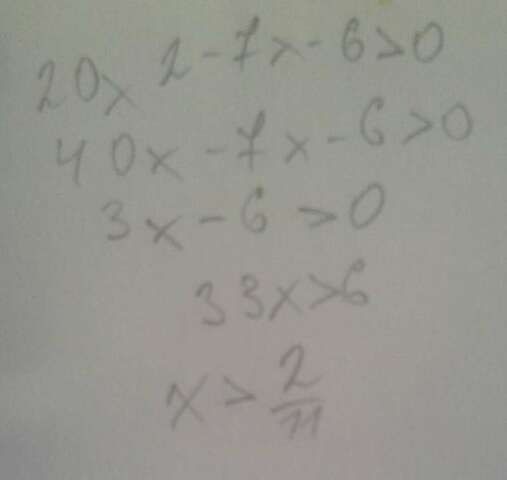 20x 2 - 7x - 6 > 0
40x - 7x - 6 > 0
3x - 6 > 0
33x > 6
x > 2/11